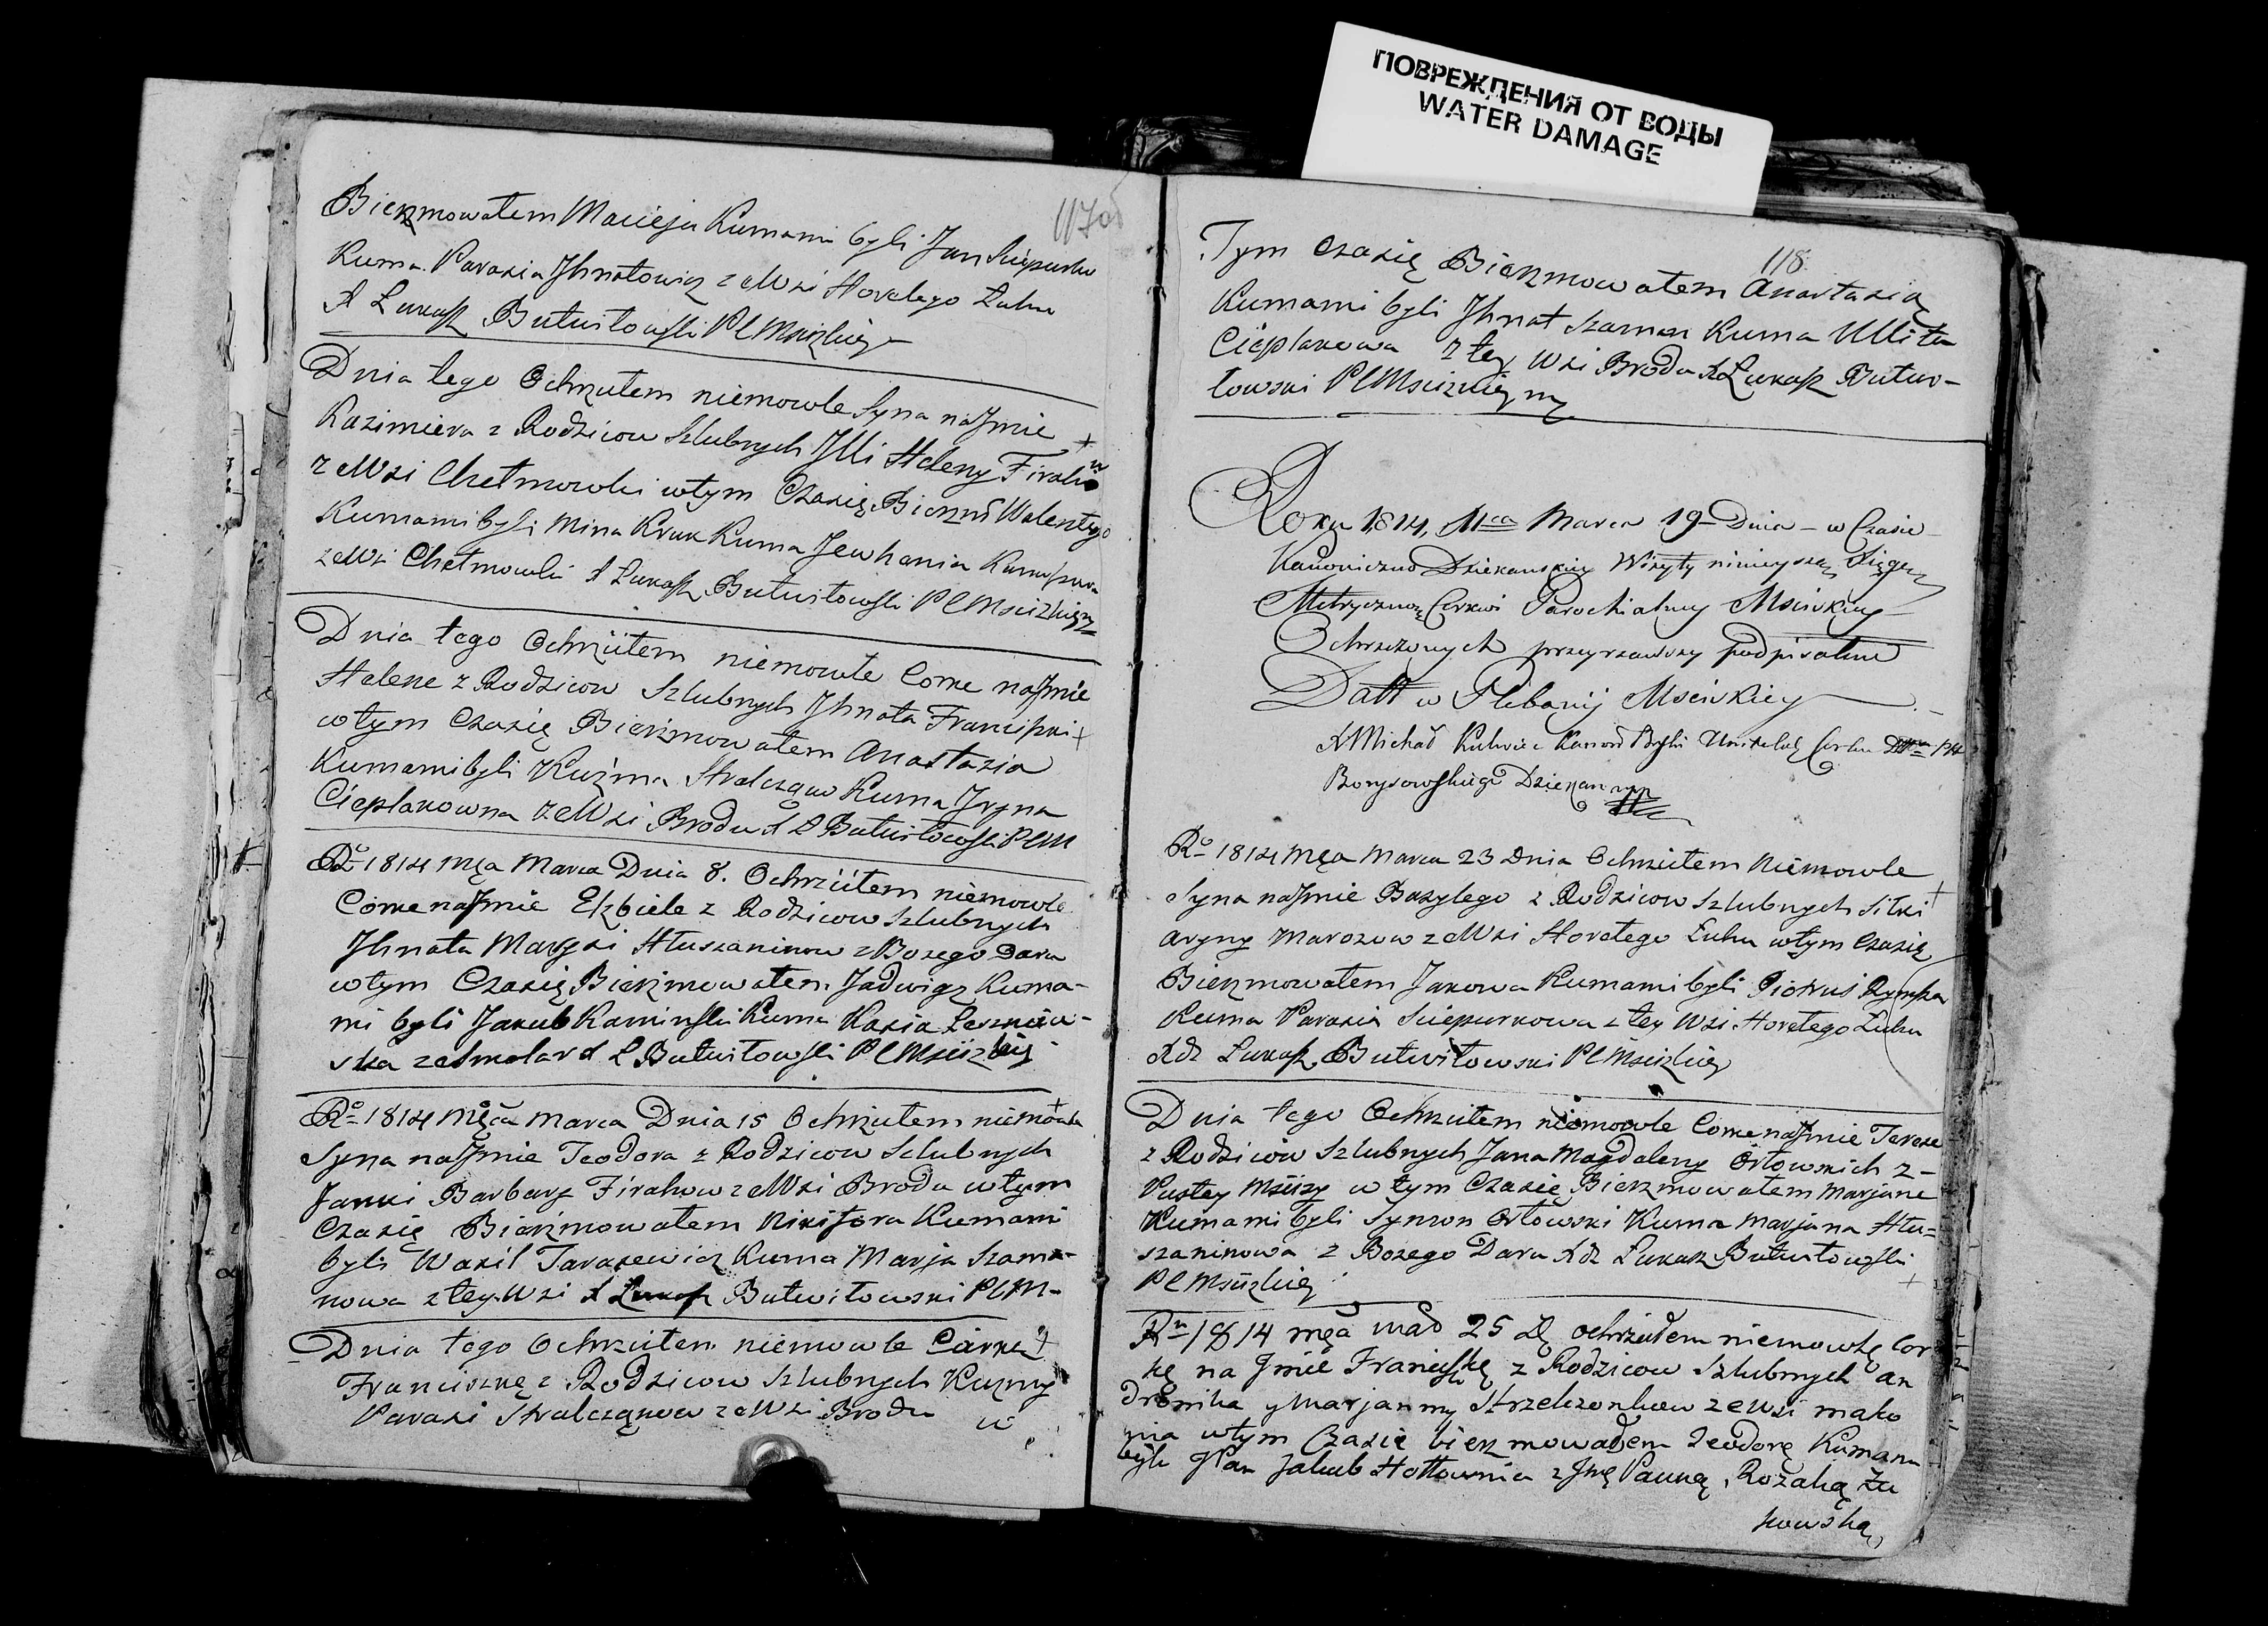 ПОВРЕЖДЕНИЯ ОТ ВОДЫ
WATER DAMAGE
117об
Bierzmowałem Macieja Kumami byli Jan Sciepurko
Kuma Parasia Jhnatowicz ze Wsi Horełego Łuhu
X Łukasz Butwiłowski P C Msciżkiey
Dnia tego Ochrzciłem niemowle Syna na Jmie +
Kazimiera z Rodzicow Szlubnych Jlli Heleny Firahow
ze Wsi Chełmowki w tym Czasię Bierzm Walentego
Kumami byli Mina Kruk Kuma Jewhania
ze Wsi Chełmowki X Łukasz Butwiłowski P C Msciżkiey
Dnia tego Ochrzciłem niemowle Corke na Jmie
Helene z Rodzicow Szlubnych Jhnata Franciszki +
w tym Czasię Bierzmowałem Anastazia
Kumami byli Kuzma Stralcząw Kuma Jryna
Cieplakowna ze Wsi Brodu X Ł Butwiłowski P C M
Ro 1814 Mca Marca Dnia 8. Ochrzciłem niemowle
Corke na Jmie Elzbiete z Rodzicow Szlubnych
Jhnata Maryi Hłuszaninow z Bożego Daru
w tym Czasię Bierzmowałem Jadwigę Kuma-
mi byli Jakub Kaminski Kuma Kasia
ska ze Smolar X Ł Butwiłowski P C Msciżkiey
Ro 1814 Mca Marca Dnia 15 Ochrzciłem niemowle +
Syna na Jmie Teodora z Rodzicow Szlubnych
Janki Barbary Firahow ze Wsi Brodu w tym
Czasię Bierzmowałem Nikifora Kumami
byli Wasil Tarasewicz Kuma Marja Szama-
nowa z tey Wsi X Łukasz Butwiłowski P C M-
Dnia tego Ochrzciłem niemowle Córke +
Franciszkę z Rodzicow Szlubnych Kuzmy
Parasi Stralcząnow ze Wsi Brodu w
118
Tym Czasię Bierzmowałem Anastazią
Kumami byli Jhnat Szaman Kuma Ullita
Cieplakowa z tey Wsi Brodu X Łukasz Butwi-
łowski P C Msciżkiey
Roku 1814, Mca Marca 19 Dnia - w Czasie
Kanoniczno Dziekanskiey Wizyty ninieyszą Xięgę
Metryczną Cerkwi Parochialney Msciżkiey
Ochrzczonych przeyrzawszy podpisałem
Datt w Plebanij Msciżkiey
X Michał Kulwiec Kanon
Borysowskiego Dziekan
Ro 1814 Mca Marca 23 Dnia Ochrzciłem Niemowle
Syna na Jmie Bazylego z Rodzicow Szlubnych Siłki +
Aryny Marozow ze Wsi Horełego Łuhu w tym Czasię
Bierzmowałem Jakowa Kumami byli Piotruś Rymsza
Kuma Parasia Sciepurkowa z tey Wsi Horełego Łuhu
Xdz Łukasz Butwiłowski P C Msciżkiey
Dnia tego Ochrzciłem niemowle Corke na Jmie Terese
z Rodzicow Szlubnych Jana Magdaleny Orłowskich z-
Pustey Mściży w tym Czasię Bierzmowałem Marjane
Kumami byli Symon Orłowski Kuma Marjana Hłu-
szaninowa z Bożego Daru Xdz Łukasz Butwiłowski
P C Msciżkiey +
Ru 1814 mca mar 25 D ochrzciłem niemowlę cor
kę na Jmie Franciszkę z Rodzicow Szlubnych an
dronika y Marjanny Strzelczonkow ze wsi mako
nia w tym Czasie bierzmowałem Teodorę Kumami
byli JPan Jakub Hołownia z JPą Panną Rozalią Żu
kowską